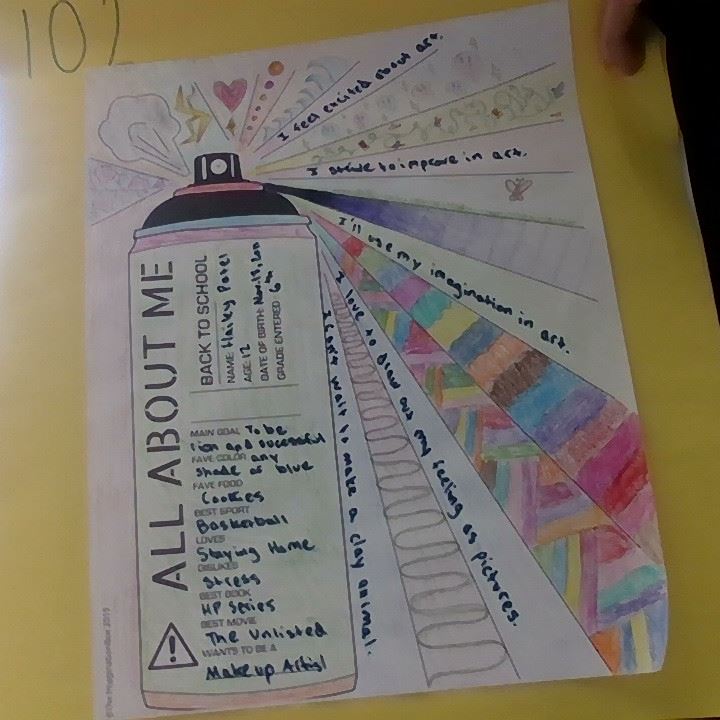 10)
I feel excited about art.
I strive to improve in art.
I'll use my imagination in art.
I love to draw out my feeling as pictures.
I can't wait to make a clay animal.
ALL ABOUT ME
BACK TO SCHOOL
NAME: Hailey Patel
AGE: 12
DATE OF BIRTH: Nov.
GRADE ENTERED: 6th
MAIN GOAL To be
rich and successful
FAVE COLOR any
Shade of blue
FAVE FOOD
Cookies
BEST SPORT
Basketball
LOVES
Staying Home
DISLIKES
Stress
BEST BOOK
HP Series
BEST MOVIE
The Unlisted
WANTS TO BE A
Makeup Artist
©The ImaginationBox 2015